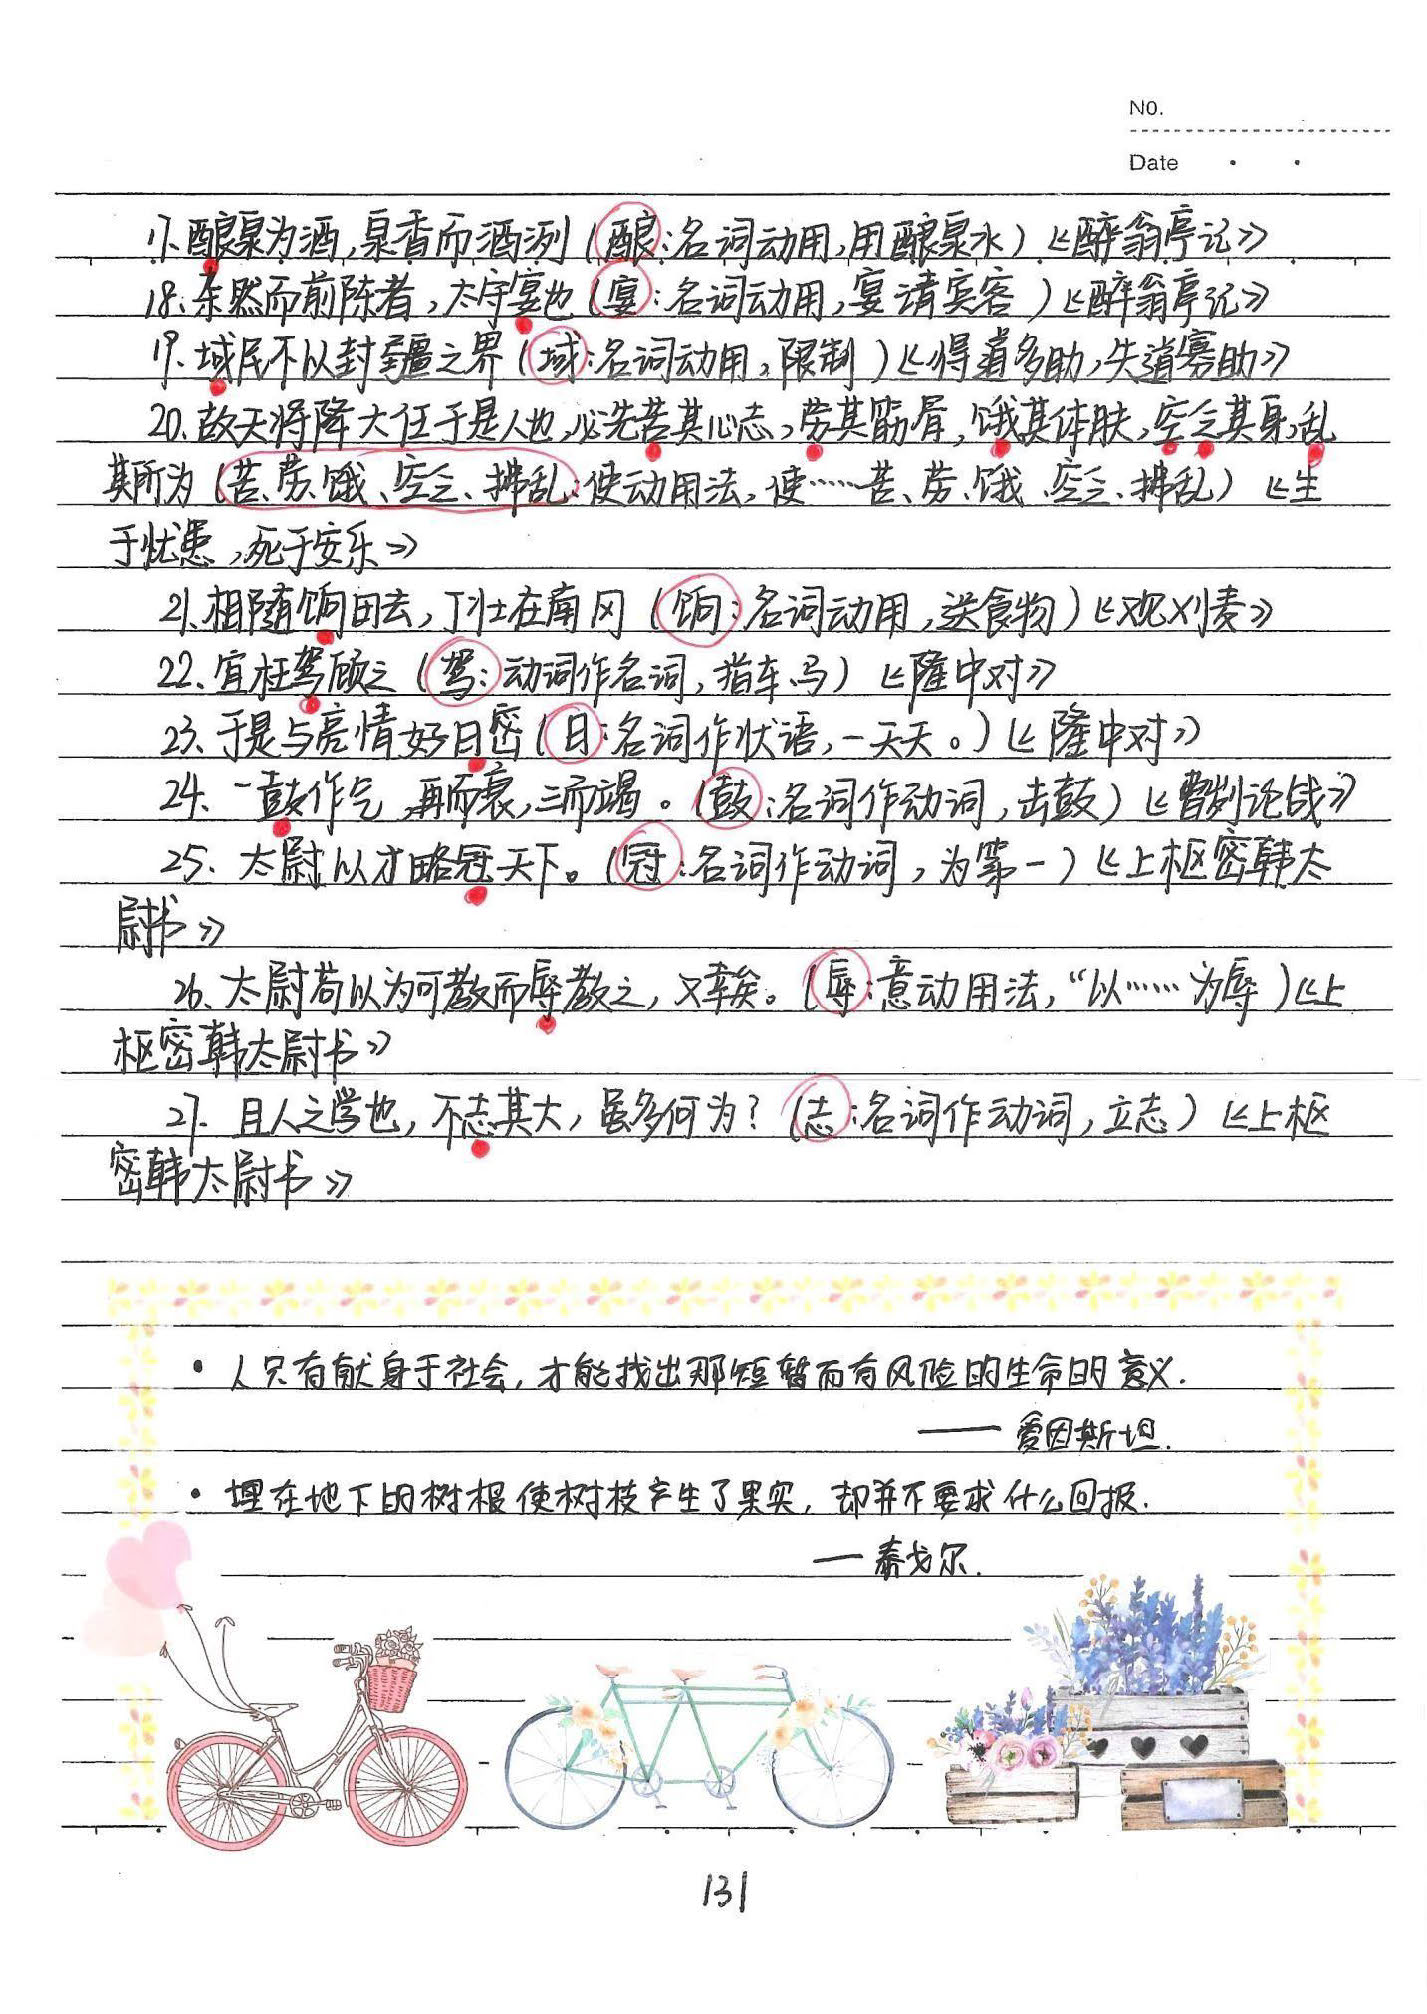 No.
Date
17、酿泉为酒,泉香而酒洌(酿:名词动用,用酿泉水)《醉翁亭记》
18、杂然而前陈者,太守宴也(宴:名词动用,宴请宾客)《醉翁亭记》
19、域民不以封疆之界(域:名词动用,限制)《得道多助,失道寡助》
20、故天将降大任于是人也,必先苦其心志,劳其筋骨,饿其体肤,空乏其身,乱
其所为(苦、劳、饿、空乏、拂乱:使动用法,使……苦、劳、饿、空乏、拂乱)《生
于忧患,死于安乐》
21、相随饷田去,丁壮在南冈(饷:名词动用,送食物)《观刈麦》
22、宜枉驾顾之(驾:动词作名词,指车、马)《隆中对》
23、于是与亮情好日密(日:名词作状语,一天天。)《隆中对》
24、一鼓作气,再而衰,三而竭。(鼓:名词作动词,击鼓)《曹刿论战》
25、太尉以才略冠天下。(冠:名词作动词,为第一)《上枢密韩太
尉书》
26、太尉苟以为可教而辱教之,又幸矣。(辱:意动用法,“以……为辱)《上
枢密韩太尉书》
27、且人之学也,不志其大,虽多何为?(志:名词作动词,立志)《上枢
密韩太尉书》
• 人只有献身于社会,才能找出那短暂而有风险的生命的意义.
——爱因斯坦.
• 埋在地下的树根使树枝产生了果实,却并不要求什么回报.
—泰戈尔.
131